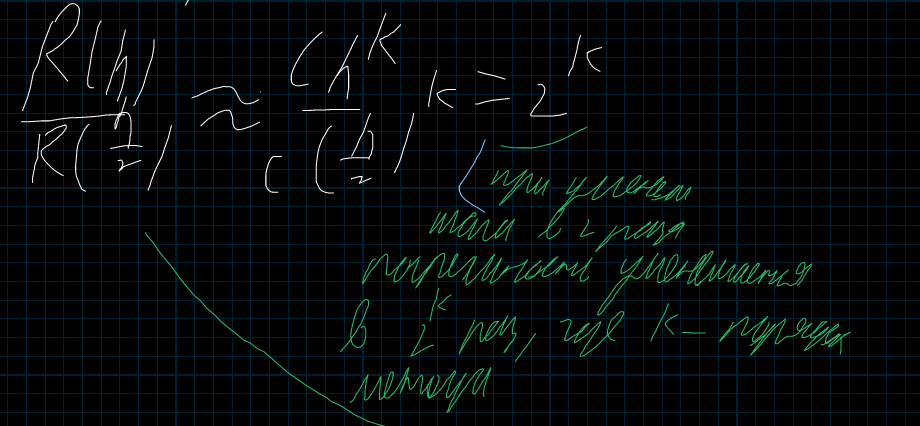 R(h) / R(h/2) ≈ C h^k / C (h/2)^k = 2^k
при уменьш
шага в 2 раза
погрешность уменьшается
в 2^k раз, где k – порядок
метода